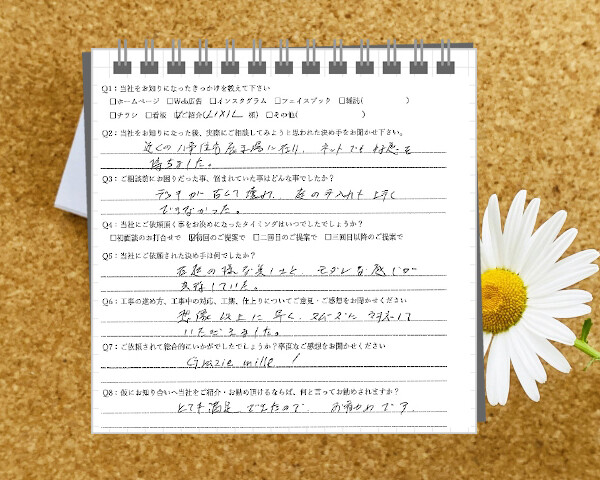 Q1：当社をお知りになったきっかけを教えて下さい
□ホームページ □Web広告 □インスタグラム □フェイスブック □雑誌( )
□チラシ □看板 ☑ご紹介(LIXIL 様) □その他( )
Q2：当社をお知りになった後、実際にご相談してみようと思われた決め手をお聞かせ下さい。
近くの 住宅展示場に 行け、ネットでも 好感を
持ちました。
Q3：ご相談前にお困りだった事、悩まれていた事はどんな事でしたか？
デッキが 古くて 庭の手入れも 上手く
できなかった。
Q4：当社にご依頼頂く事をお決めになったタイミングはいつでしたでしょうか？
□初面談のお打合せで ☑初回のご提案で □二回目のご提案で □三回目以降のご提案で
Q5：当社にご依頼された決め手は何でしたか？
の様な美しさと、モダンな感じが
していた。
Q6：工事の進め方、工事中の対応、工期、仕上りについてご意見・ご感想をお聞かせください
想像以上に 早く、スムーズに 対応して
いただきました。
Q7：ご依頼されて総合的にいかがでしたでしょうか？率直なご感想をお聞かせください
Grazie mille !
Q8：仮にお知り合いへ当社をご紹介・お勧め頂けるならば、何と言ってお勧めされますか？
とても満足 できたので、 お勧めです。